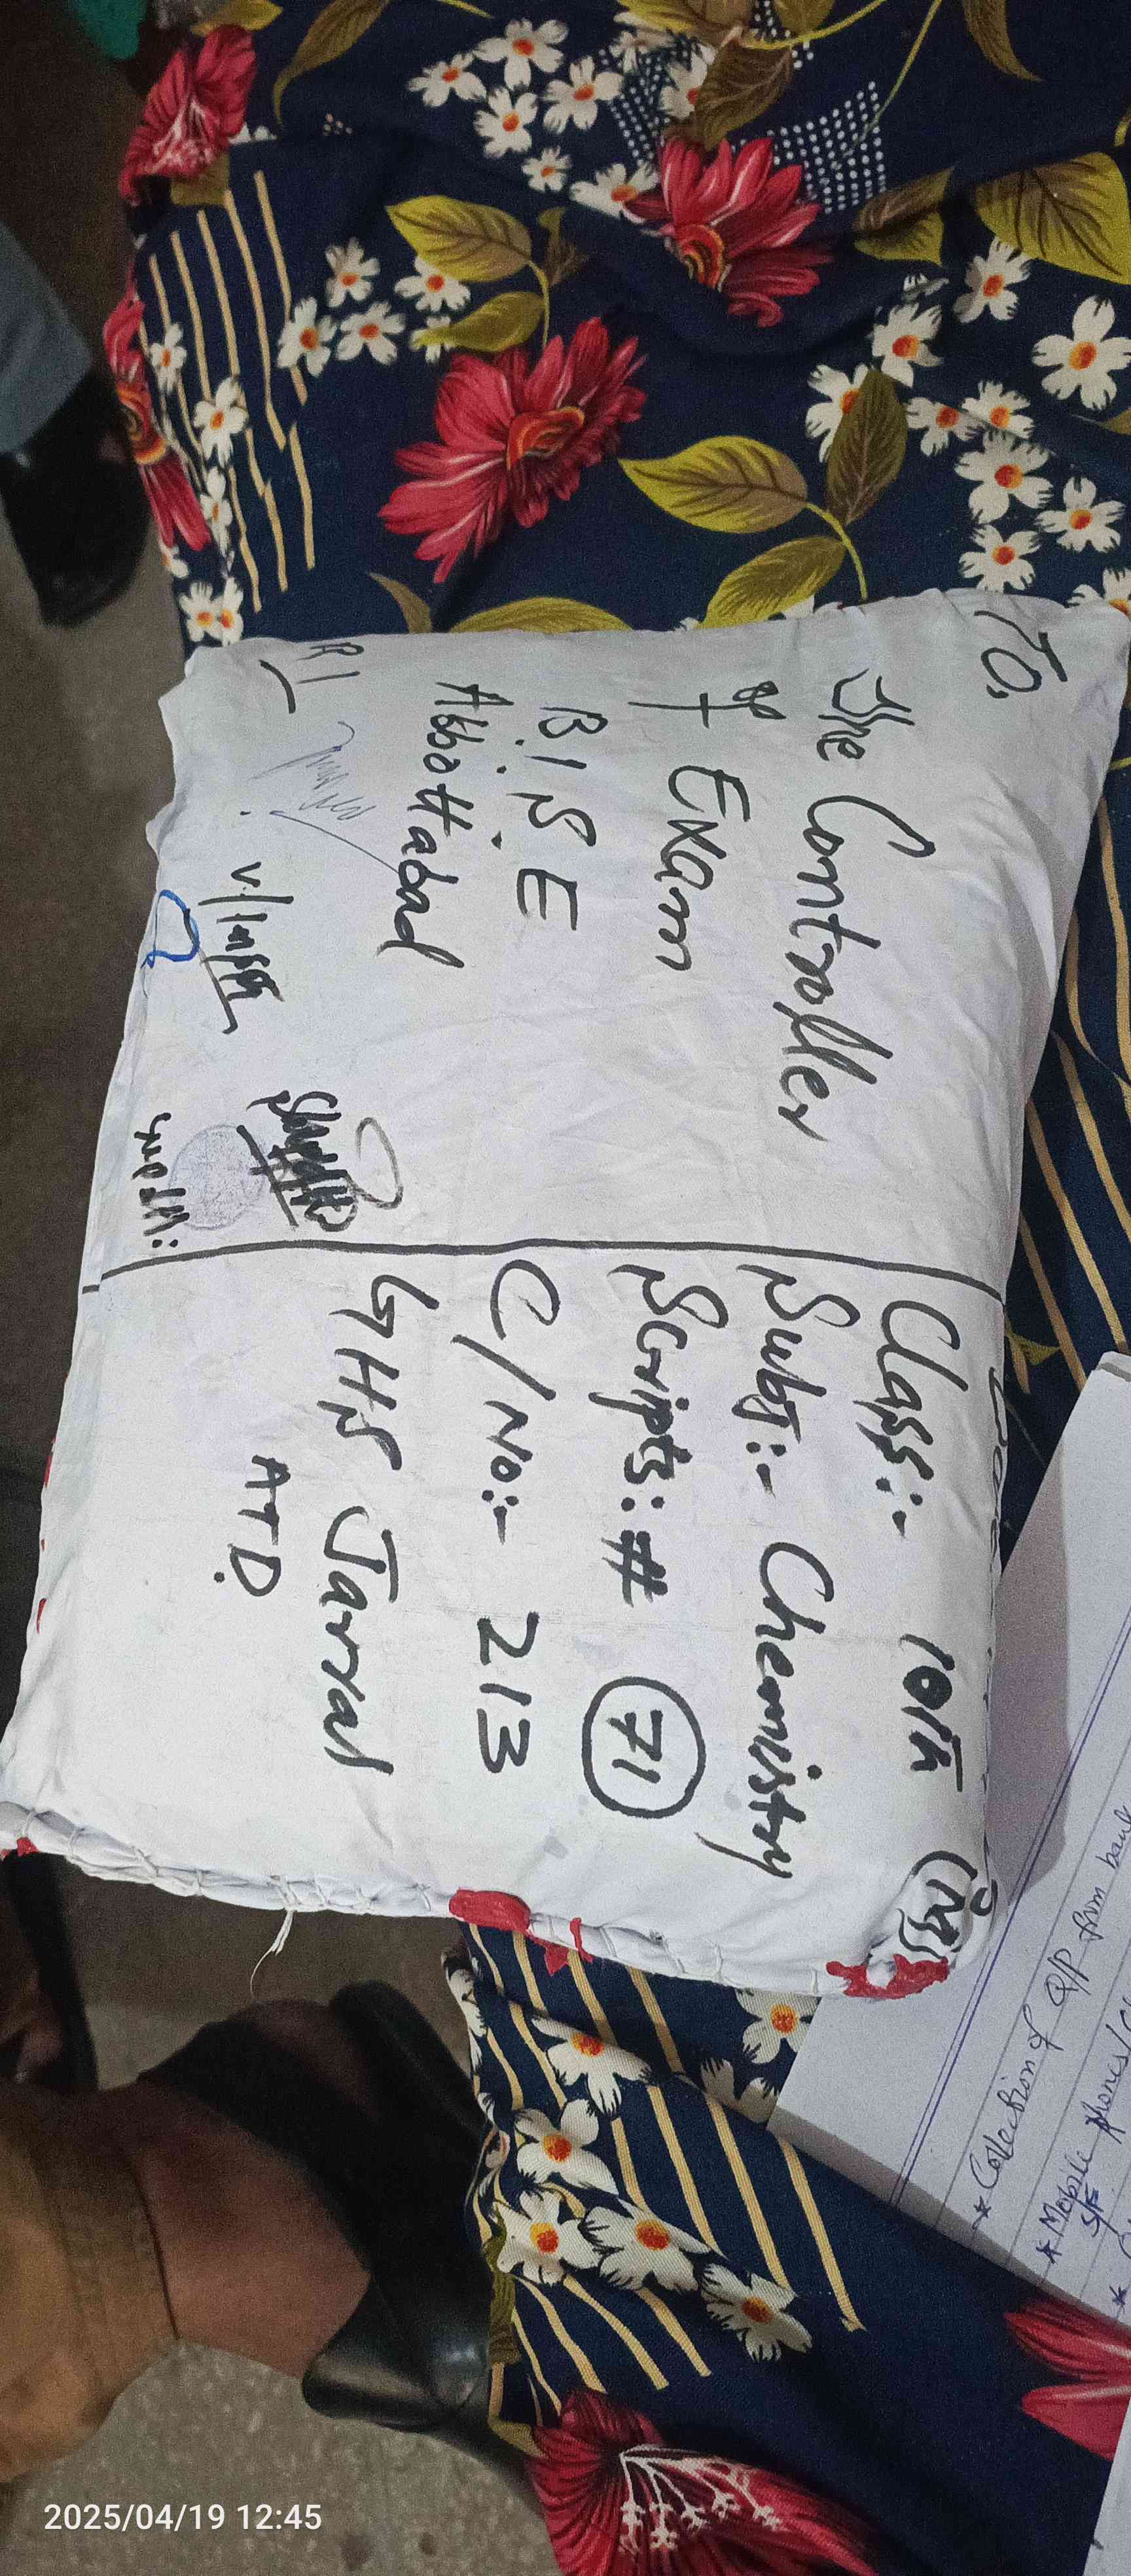 To,
The Controller
of Exam
B.I.S.E
Abbottabad
R/
Class:- 10th (M)
Subj:- Chemistry
Scripts: # 71
C/No:- 213
GHS Jarral
ATD.
* Collection of Q/P from bank
* Mobile phones/
2025/04/19 12:45